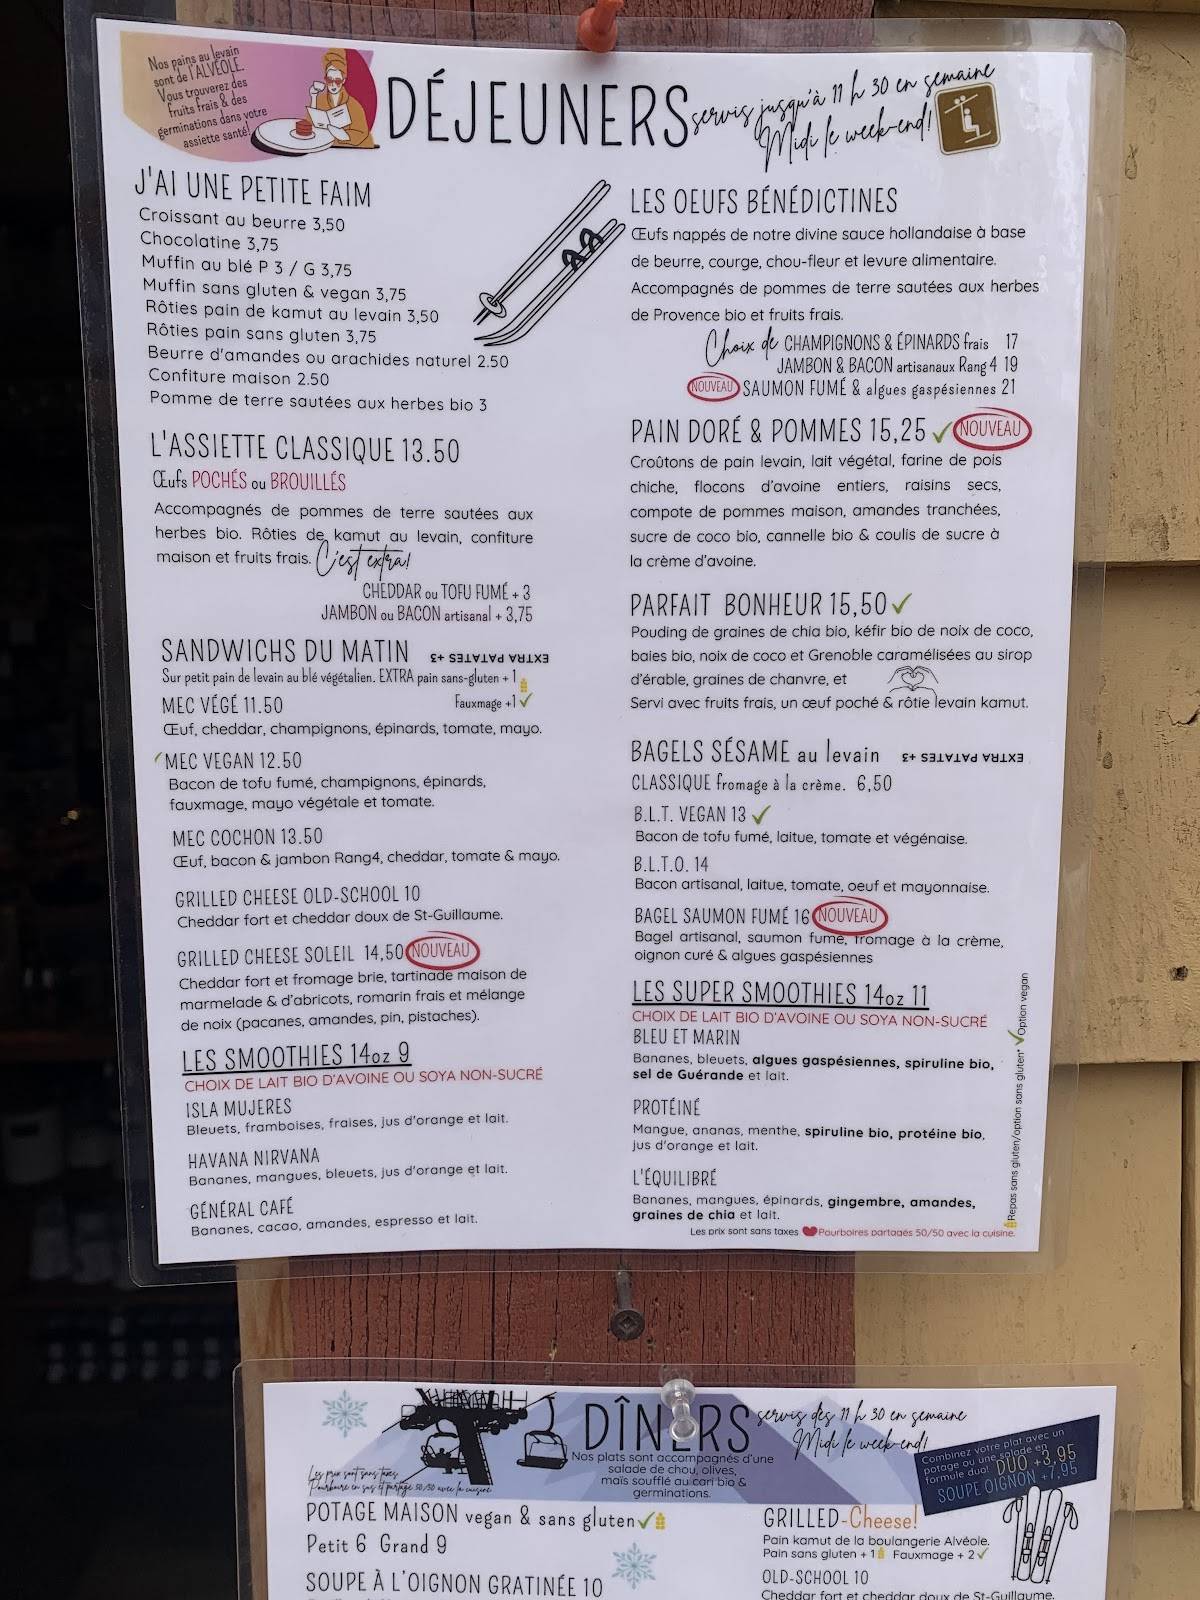 Nos pains au levain
sont de l'ALVÉOLE.
Vous trouverez des
fruits frais & des
germinations dans votre
assiette santé!
DÉJEUNERS
servis jusqu'à 11 h 30 en semaine
Midi le week-end!
J'AI UNE PETITE FAIM
Croissant au beurre 3,50
Chocolatine 3,75
Muffin au blé P 3 / G 3,75
Muffin sans gluten & vegan 3,75
Rôties pain de kamut au levain 3,50
Rôties pain sans gluten 3,75
Beurre d'amandes ou arachides naturel 2.50
Confiture maison 2.50
Pomme de terre sautées aux herbes bio 3
L'ASSIETTE CLASSIQUE 13.50
Œufs POCHÉS ou BROUILLÉS
Accompagnés de pommes de terre sautées aux
herbes bio. Rôties de kamut au levain, confiture
maison et fruits frais. C'est extra!
CHEDDAR ou TOFU FUMÉ + 3
JAMBON ou BACON artisanal + 3,75
SANDWICHS DU MATIN EXTRA PATATES +3
Sur petit pain de levain au blé végétalien. EXTRA pain sans-gluten + 1
MEC VÉGÉ 11.50 Fauxmage +1 ✓
Œuf, cheddar, champignons, épinards, tomate, mayo.
✓MEC VEGAN 12.50
Bacon de tofu fumé, champignons, épinards,
fauxmage, mayo végétale et tomate.
MEC COCHON 13.50
Œuf, bacon & jambon Rang4, cheddar, tomate & mayo.
GRILLED CHEESE OLD-SCHOOL 10
Cheddar fort et cheddar doux de St-Guillaume.
GRILLED CHEESE SOLEIL 14,50 NOUVEAU
Cheddar fort et fromage brie, tartinade maison de
marmelade & d'abricots, romarin frais et mélange
de noix (pacanes, amandes, pin, pistaches).
LES SMOOTHIES 14oz 9
CHOIX DE LAIT BIO D'AVOINE OU SOYA NON-SUCRÉ
ISLA MUJERES
Bleuets, framboises, fraises, jus d'orange et lait.
HAVANA NIRVANA
Bananes, mangues, bleuets, jus d'orange et lait.
GÉNÉRAL CAFÉ
Bananes, cacao, amandes, espresso et lait.
LES OEUFS BÉNÉDICTINES
Œufs nappés de notre divine sauce hollandaise à base
de beurre, courge, chou-fleur et levure alimentaire.
Accompagnés de pommes de terre sautées aux herbes
de Provence bio et fruits frais.
Choix de CHAMPIGNONS & ÉPINARDS frais 17
JAMBON & BACON artisanaux Rang 4 19
NOUVEAU SAUMON FUMÉ & algues gaspésiennes 21
PAIN DORÉ & POMMES 15,25 ✓ NOUVEAU
Croûtons de pain levain, lait végétal, farine de pois
chiche, flocons d'avoine entiers, raisins secs,
compote de pommes maison, amandes tranchées,
sucre de coco bio, cannelle bio & coulis de sucre à
la crème d'avoine.
PARFAIT BONHEUR 15,50 ✓
Pouding de graines de chia bio, kéfir bio de noix de coco,
baies bio, noix de coco et Grenoble caramélisées au sirop
d'érable, graines de chanvre, et
Servi avec fruits frais, un œuf poché & rôtie levain kamut.
BAGELS SÉSAME au levain EXTRA PATATES +3
CLASSIQUE fromage à la crème. 6,50
B.L.T. VEGAN 13 ✓
Bacon de tofu fumé, laitue, tomate et végénaise.
B.L.T.O. 14
Bacon artisanal, laitue, tomate, oeuf et mayonnaise.
BAGEL SAUMON FUMÉ 16 NOUVEAU
Bagel artisanal, saumon fumé, fromage à la crème,
oignon curé & algues gaspésiennes
LES SUPER SMOOTHIES 14oz 11
CHOIX DE LAIT BIO D'AVOINE OU SOYA NON-SUCRÉ
BLEU ET MARIN
Bananes, bleuets, algues gaspésiennes, spiruline bio,
sel de Guérande et lait.
PROTÉINÉ
Mangue, ananas, menthe, spiruline bio, protéine bio,
jus d'orange et lait.
L'ÉQUILIBRÉ
Bananes, mangues, épinards, gingembre, amandes,
graines de chia et lait.
Les prix sont sans taxes Pourboires partagés 50/50 avec la cuisine.
Repas sans gluten/option sans gluten* ✓Option vegan
DÎNERS
servis dès 11 h 30 en semaine
Midi le week-end!
Nos plats sont accompagnés d'une
salade de chou, olives,
maïs soufflé au cari bio &
germinations.
Les prix sont sans taxes
Pourboire en sus et partagé 50/50 avec la cuisine
Combinez votre plat avec un
potage ou une salade en
formule duo! DUO +3,95
SOUPE OIGNON +7,95
POTAGE MAISON vegan & sans gluten ✓
Petit 6 Grand 9
SOUPE À L'OIGNON GRATINÉE 10
GRILLED-Cheese!
Pain kamut de la boulangerie Alvéole.
Pain sans gluten + 1 Fauxmage + 2 ✓
OLD-SCHOOL 10
Cheddar fort et cheddar doux de St-Guillaume.